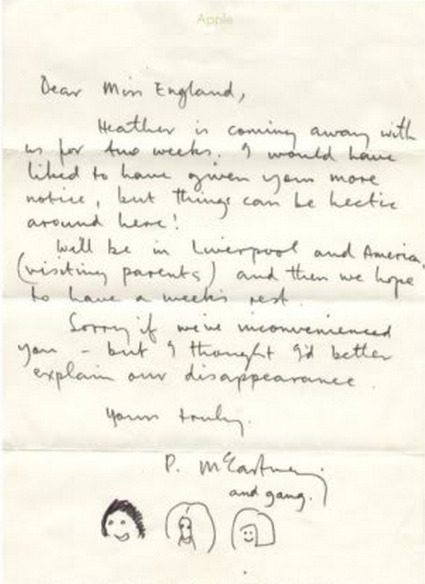 Apple
Dear Miss England,
Heather is coming away with
us for two weeks. I would have
liked to have given you more
notice, but things can be hectic
around here!
We'll be in Liverpool and America,
(visiting parents) and then we hope
to have a weeks rest.
Sorry if we've inconvenienced
you - but I thought I'd better
explain our disappearance.
Yours truly.
P. McCartney
and gang.